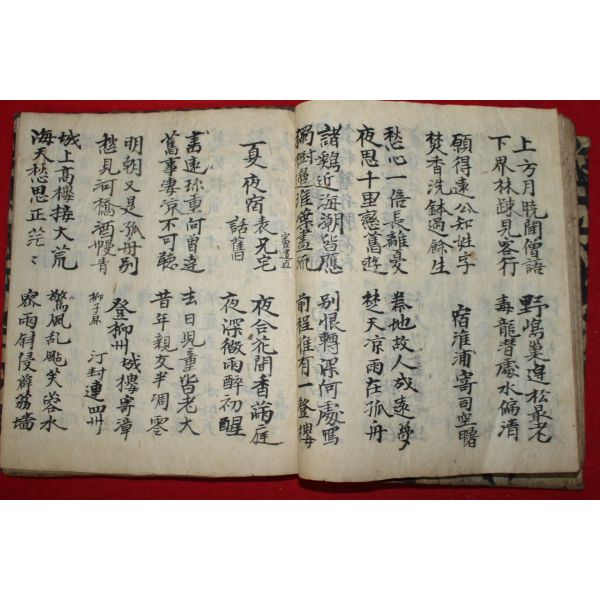 上方月曉聞僧語
下界林踈見客行
野鳥巢邊松最老
毒龍潛處水偏清
願得遠公知姓字
焚香洗鉢過餘生
宿淮浦寄司空曙
愁心一倍長離憂
夜思千里戀舊遊
秦地故人成遠夢
楚天凉雨在孤舟
諸谿近海潮皆應
獨樹邊淮葉盡流
別恨轉深何處寫
前程惟有一登樓
夏夜宿表兄宅
話舊
竇遺直
夜合花開香滿庭
夜深微雨醉初醒
書遠珎重何曾達
舊事凄凉不可聽
去日兒童皆老大
昔年親友半凋零
明朝又是孤舟別
愁見河橋酒幔青
登柳州城樓寄漳
汀封連四州
柳子厚
城上高樓接大荒
海天愁思正茫〻
驚風乱颭芙蓉水
密雨斜侵薜荔墻